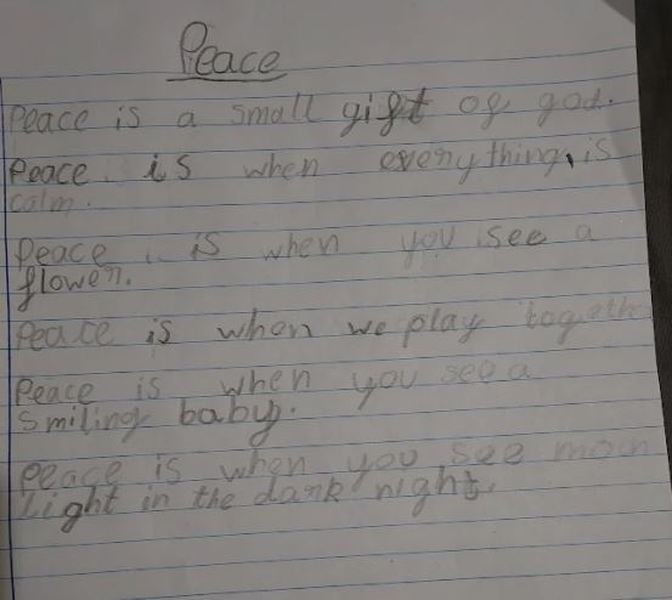 Peace
Peace is a small gift of god.
Peace is when everything is
calm.
Peace is when you see a
flower.
Peace is when we play togeth
Peace is when you see a
smiling baby.
Peace is when you see moon
Light in the dark night.